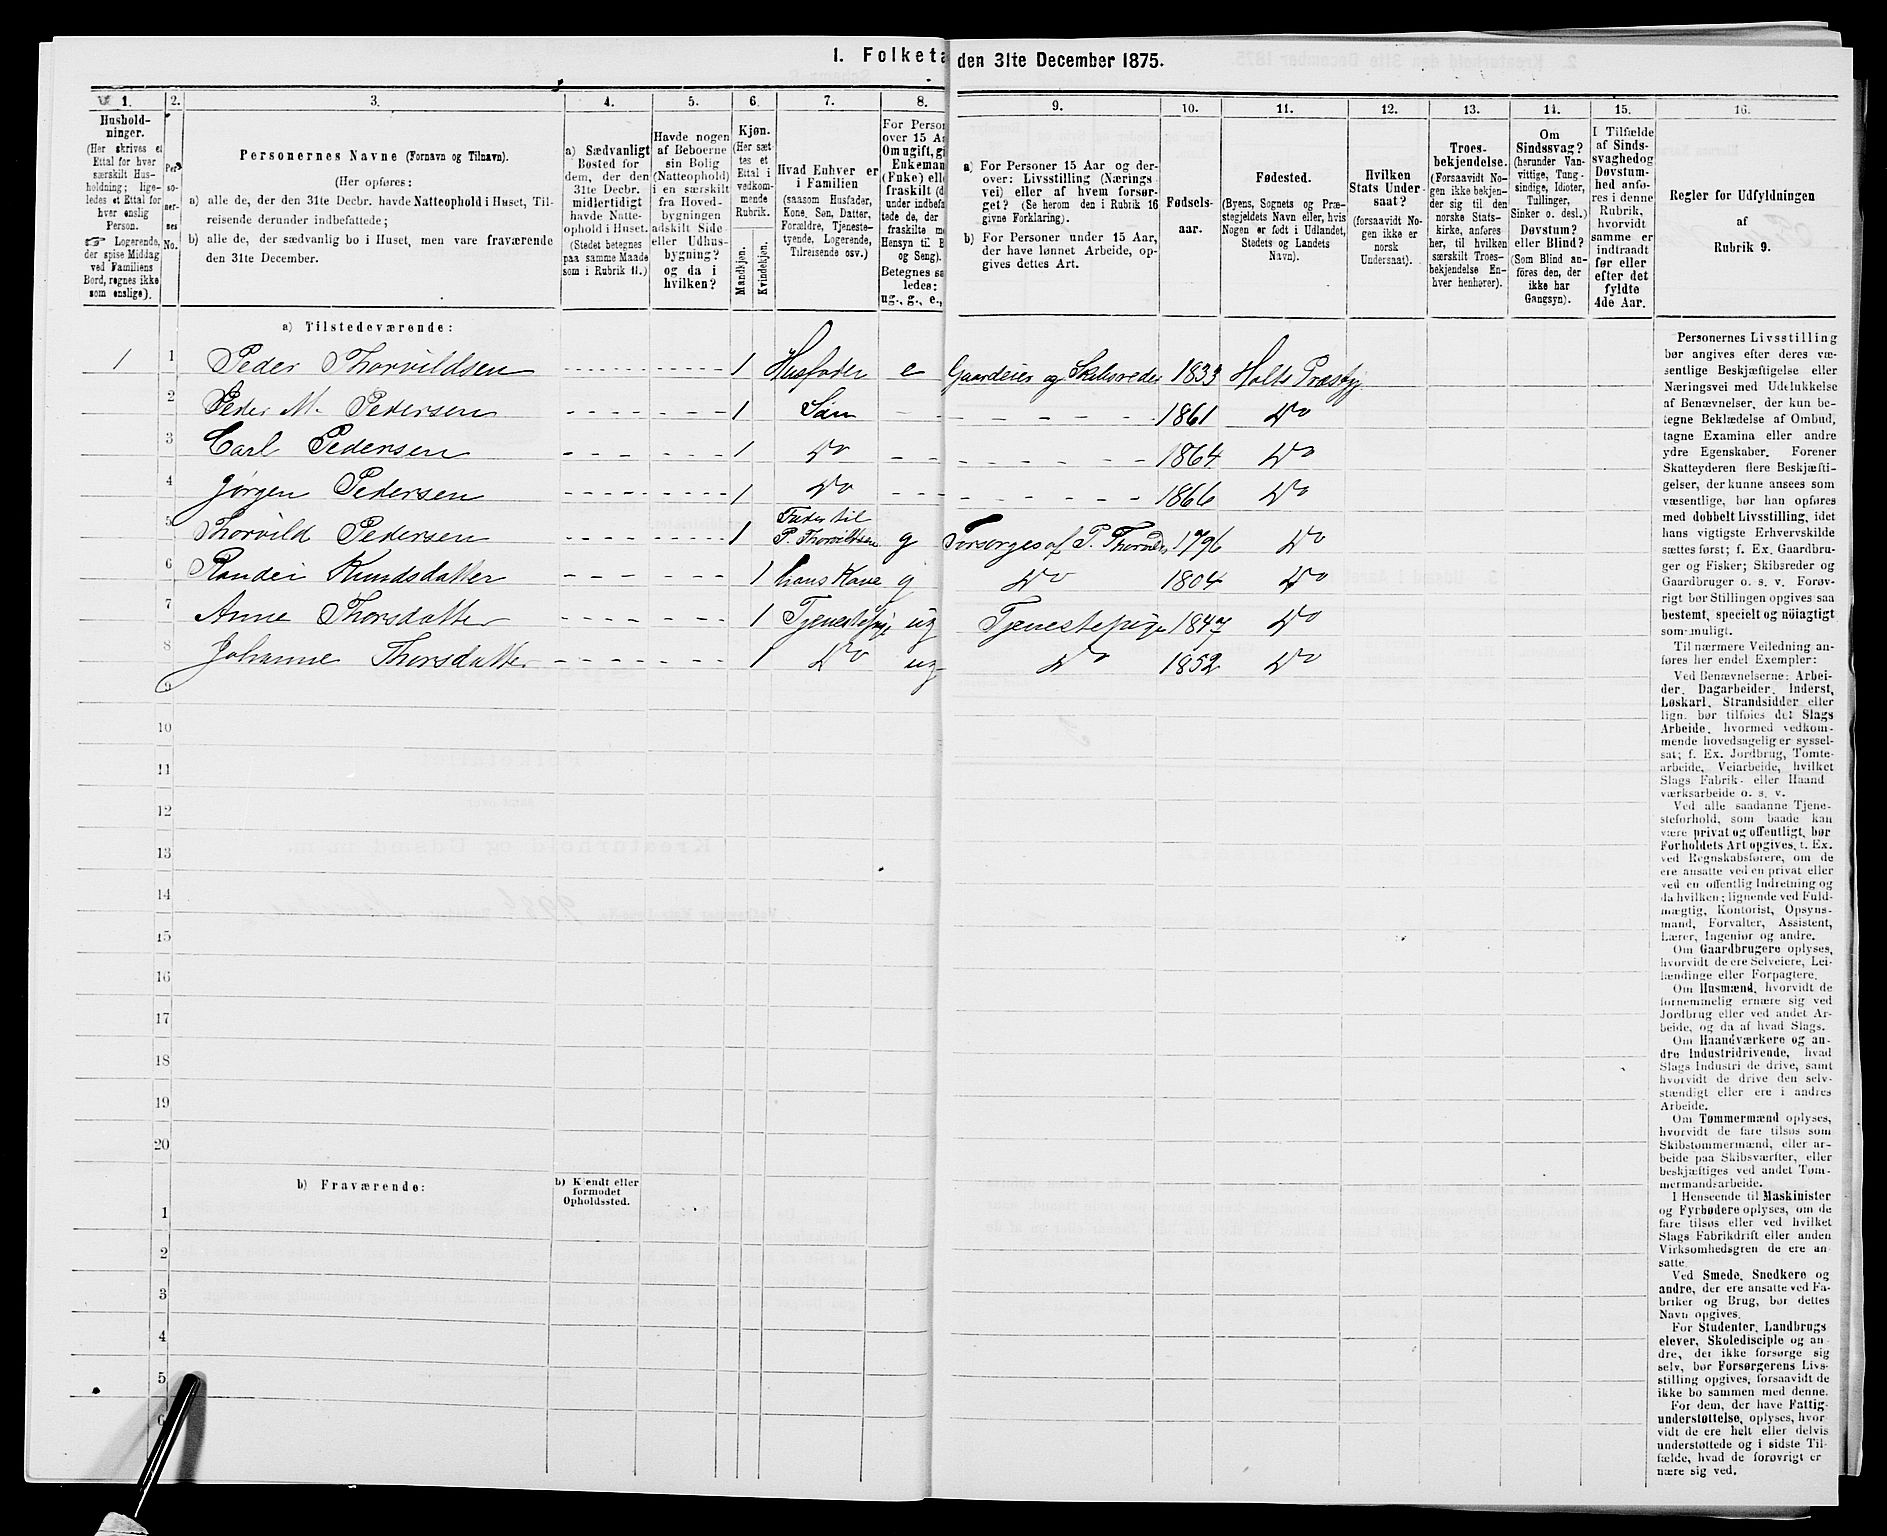 1. Folketæ
den 31te December 1875.
1. 2. 3. 4. 5. 6. 7. 8. 9. 10. 11. 12. 13. 14. 15. 16.
Hushold-
ninger.
(Her skrives et
Ettal for hver
særskilt Hus-
holdning; lige-
ledes et Ettal for
hver enslig
Person.
☞ Logerende,
der spise Middag
ved Familiens
Bord, regnes ikke
som enslige).
Per-
so-
ner-
nes
No.
Personernes Navne (Fornavn og Tilnavn).
(Her opføres:
a) alle de, der den 31te Decbr. havde Natteophold i Huset, Til-
reisende derunder indbefattede;
b) alle de, der sædvanlig bo i Huset, men vare fraværende
den 31te December.
a) Sædvanligt
Bosted for
dem, der den
31te Decbr.
midlertidigt
havde Natte-
ophold i Huset.
(Stedet betegnes
paa samme Maade
som i Rubrik 11.)
Havde nogen
af Beboerne
sin Bolig
(Natteophold)
i en særskilt
fra Hoved-
bygningen
adskilt Side-
eller Udhus-
bygning?
og da i
hvilken?
Kjøn.
(Her sæt-
tes et
Ettal i
vedkom-
mende
Rubrik.
Mandkjøn.
Kvindekjøn.
Hvad Enhver er
i Familien
(saasom Husfader,
Kone, Søn, Datter,
Forældre, Tjeneste-
tyende, Logerende,
Tilreisende osv.)
For Person
over 15 Aa
Om ugift, gi
Enkeman
(Enke) elle
fraskilt (d
under indbefa
tede de, der
fraskilte me
Hensyn til B
og Seng).
Betegnes saa
ledes:
ug., g., e.,
a) For Personer 15 Aar og der-
over: Livsstilling (Nærings-
vei) eller af hvem forsør-
get? (Se herom den i Rubrik 16
givne Forklaring).
b) For Personer under 15 Aar,
der have lønnet Arbeide, op-
gives dettes Art.
Fødsels-
aar.
Fødested.
(Byens, Sognets og Præ-
stegjeldets Navn eller, hvis
Nogen er født i Udlandet,
Stedets og Landets
Navn).
Hvilken
Stats Under-
saat?
(forsaavidt No-
gen ikke er
norsk
Undersaat).
Troes-
bekjendelse.
(Forsaavidt No-
gen ikke bekjen-
der sig til den
norske Stats-
kirke, anføres
her, til hvilken
særskilt Troes-
bekjendelse En-
hver henhører).
Om
Sindssvag?
(herunder Van-
vittige, Tung-
sindige, Idioter,
Tullinger,
Sinker o. desl.)
Døvstum?
eller Blind?
(Som Blind an-
føres den, der
ikke har
Gangsyn).
I Tilfælde
af Sinds-
svaghed og
Døvstum-
hed anfø-
res i denne
Rubrik,
hvorvidt
samme er
indtraadt
før eller
efter det
fyldte
4de Aar.
Regler for Udfyldningen
af
Rubrik 9.
a) Tilstedeværende:
1 1 Peder Thorvildsen 1 Husfader e Gaardeier og Skibsreder 1833 Holts Præstgj
2 Peder M. Pedersen 1 Søn 1861 Do
3 Carl Pedersen 1 Do 1864 Do
4 Jørgen Pedersen 1 Do 1866 Do
5 Thorvild Pedersen 1 Fader til P. Thorvildsen g Forsørges af P. Thorvilds 1796 Do
6 Randei Knudsdatter 1 hans Kone g Do 1804 Do
7 Anne Thorsdatter 1 Tjenestepige ug Tjenestepige 1847 Do
8 Johanne Thorsdatter 1 Do ug Do 1852 Do
9
10
11
12
13
14
15
16
17
18
19
20
b) Fraværende:
b) Kjendt eller
formodet
Opholdssted.
1
2
3
4
5
6
Personernes Livsstilling
bør angives efter deres væ-
sentlige Beskjæftigelse eller
Næringsvei med Udelukkelse
af Benævnelser, der kun be-
tegne Beklædelse af Ombud,
tagne Examina eller andre
ydre Egenskaber. Forener
Skatteyderen flere Beskjæfti-
gelser, der kunne ansees som
væsentlige, bør han opføres
med dobbelt Livsstilling, idet
hans vigtigste Erhvervskilde
sættes først; f. Ex. Gaardbru-
ger og Fisker; Skibsreder og
Gaardbruger o. s. v. Forøv-
rigt bør Stillingen opgives saa
bestemt, specielt og nøiagtigt
som muligt.
Til nærmere Veiledning an-
føres her endel Exempler:
Ved Benævnelserne: Arbei-
der, Dagarbeider, Inderst,
Løskarl, Strandsidder eller
lign. bør tilføies det Slags
Arbeide, hvormed vedkom-
mende hovedsagelig er syssel-
sat; f. Ex. Jordbrug, Tomte-
arbeide, Veiarbeide, hvilket
Slags Fabrik- eller Haand
værksarbeide o. s. v.
Ved alle saadanne Tjene-
steforhold, som baade kan
være privat og offentligt, bør
Forholdets Art opgives, t. Ex.
ved Regnskabsførere, om de
ere ansatte ved en privat eller
ved en offentlig Indretning og
da hvilken; lignende ved Fuld-
mægtig, Kontorist, Opsyns-
mand, Forvalter, Assistent,
Lærer, Ingeniør og andre.
Om Gaardbrugere oplyses,
hvorvidt de ere Selveiere, Lei-
lændinge eller Forpagtere.
Om Husmænd, hvorvidt de
fornemmelig ernære sig ved
Jordbrug eller ved andet Ar-
beide, og da af hvad Slags.
Om Haandværkere og an-
dre Industridrivende, hvad
Slags Industri de drive, samt
hvorvidt de drive den selv-
stændigt eller ere i andres
Arbeide.
Om Tømmermænd oplyses,
hvorvidt de fare tilsøs som
Skibstømmermænd, eller ar-
beide paa Skibsværfter, eller
beskjæftiges ved andet Tøm-
mermandsarbeide.
I Henseende til Maskinister
og Fyrbødere oplyses, om de
fare tilsøs eller ved hvilket
Slags Fabrikdrift eller anden
Virksomhedsgren de ere an-
satte.
Ved Smede, Snedkere og
andre, der ere ansatte ved Fa-
briker og Brug, bør dettes
Navn opgives.
For Studenter, Landbrugs
elever, Skoledisciple og an-
dre, der ikke forsørge sig
selv, bør Forsørgerens Livs-
stilling opgives, forsaavidt de
ikke bo sammen med denne.
For dem, der have Fattig-
understøttelse, oplyses, hvor-
vidt de ere helt eller delvis
understøttede og i sidste Til-
fælde, hvad de forøvrigt er-
nære sig ved.